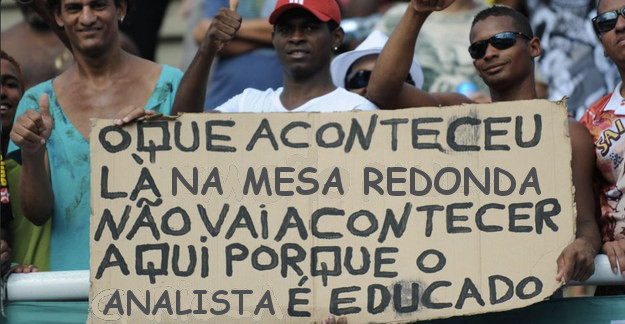 O QUE ACONTECEU
LÀ NA MESA REDONDA
NÃO VAI ACONTECER
AQUI PORQUE O
ANALISTA É EDUCADO